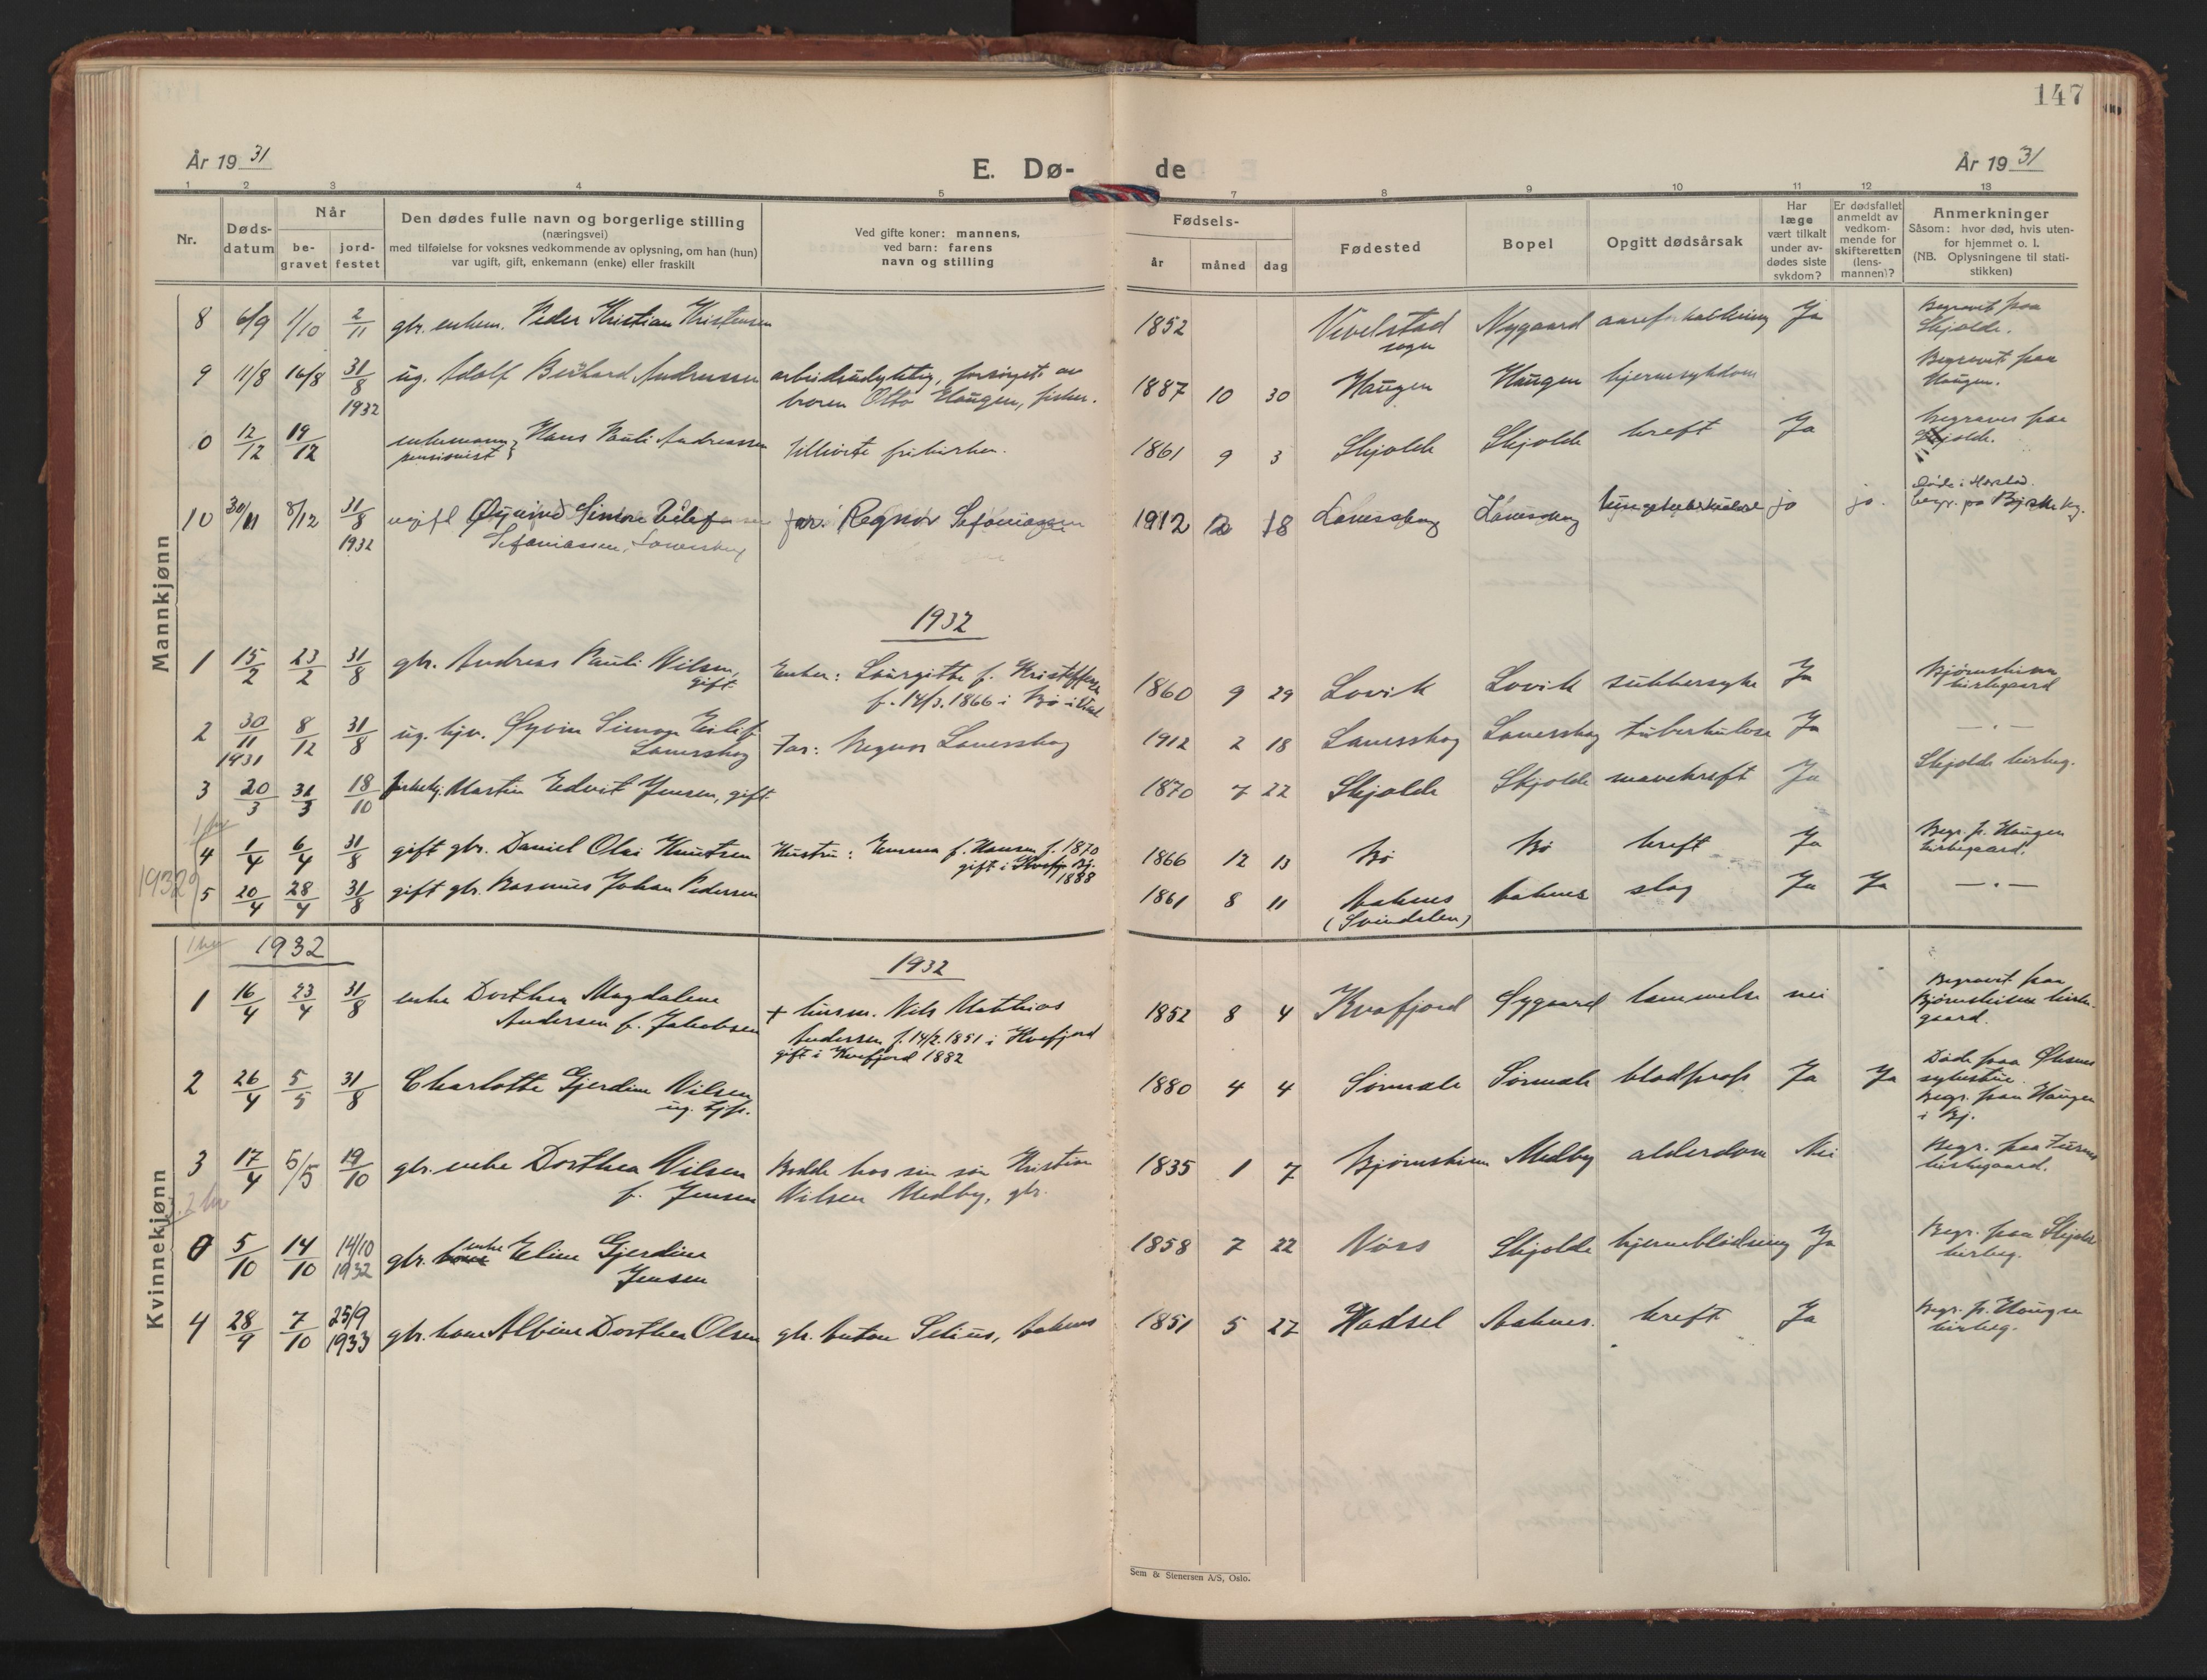 147
År 19 31
E. Dø-
de
År 19 31
1 2 3 4 5 7 8 9 10 11 12 13
Nr.
Døds-
datum
Når
be-
gravet
jord-
festet
Den dødes fulle navn og borgerlige stilling
(næringsvei)
med tilføielse for voksnes vedkommende av oplysning, om han (hun)
var ugift, gift, enkemann (enke) eller fraskilt
Ved gifte koner: mannens,
ved barn: farens
navn og stilling
Fødsels-
år måned dag
Fødested
Bopel
Opgitt dødsårsak
Har
læge
vært tilkalt
under av-
dødes siste
sykdom?
Er dødsfallet
anmeldt av
vedkom-
mende for
skifteretten
(lens-
mannen)?
Anmerkninger
Såsom: hvor død, hvis uten-
for hjemmet o. l.
(NB. Oplysningene til stati-
stikken)
Mannkjønn
8 6/9 1/10 2/11 gbr. enkem. Peder Kristian Kristensen 1852 Vevelstad Nygaard aareforkalkning Ja Begravet paa
sogn Skjolde.
9 11/8 16/8 31/8 ug. Adolf Berhard Andreassen arbeidsudyktig, forsørget av 1887 10 30 Haugen Haugen hjernesykdom Begravet paa
1932 broren Otto Haugen, fisker. Haugen.
0 12/12 19/12 enkemann, Hans Pauli Andreassen Utlivete frikirken. 1861 9 3 Skjolde Skjolde kreft Ja Begraves paa
pensionist Skjolde.
10 30/11 8/12 31/8 ugift Øyvind Simon Eilef far: Regnor Sefaniassen 1912 2 18 Lanesskog Lanesskog lungetuberkulose jo jo. Døde i Harstad.
1932 Sefaniassen, Lanesskog begr. på Bj.
1932
1 15/2 23/2 31/8 gbr. Andreas Pauli Nilsen, Enke: Laurgitte f. Kristoffersen 1860 9 29 Lovik Lovik sukkersyke Ja Bjørnskinn
gift. f. 14/3. 1866 i Bø i kirkegaard
2 30/11 8/12 31/8 ug. hjv. Øyvin Simon Eilef Far: Regnor Lanesskog 1912 2 18 Lanesskog Lanesskog tuberkulose Ja — . —
1931 Lanesskog
3 20/3 31/3 18/10 Martin Edvit Jensen, gift 1870 7 22 Skjolde Skjolde mavekreft Ja Skjolde kirkeg.
4 1/4 6/4 31/8 gift gbr. Daniel Olai Knutsen Hustru: Emma f. Hansen f. 1870 1866 12 13 Bø Bø kreft Ja Begr. p. Haugen
gift i Kvefj. kirkegaard.
1888
1932
5 20/4 28/4 31/8 gift gbr. Rasmus Johan Pedersen 1861 8 11 Aaknes Aaknes slag Ja Ja — . —
(Svindalen)
Kvinnekjønn
1932
1932
1 16/4 23/4 31/8 enke Dorthea Magdalene + husm. Nils Mathias 1852 8 4 Kvæfjord Øygaard lammelse nei Begravet paa
Andersen f. Jakobsen Andersen f. 14/2. 1851 i Kvefjord Bjørnskinn kirke-
gift i Kvefjord 1882 gaard.
2 26/4 5/5 31/8 Charlotte Gjerdine Nilsen 1880 4 4 Sørmæle Sørmæle blodprop Ja Ja Døde paa Øksnes
ug. hjp. sykestue.
Begr. paa Haugen
i Bj.
3 17/4 5/5 19/10 gbr. enke Dorthea Nilsen Bodde hos sin søn Kristian 1835 1 7 Bjørnskinn Medby alderdom Nei Begr. paa
f. Jensen Nilsen Medby, gbr. kirkegaard.
0 5/10 14/10 14/10 gbr. enke Eline Gjerdine 1858 7 22 Nøss Skjolde hjerneblødning Ja Begr. paa Skjolde
1932 Jensen kirkeg.
4 28/9 7/10 25/9 gbr. kone Albine Dorthea Olsen gbr. Anton Selius, Aaknes 1851 5 27 Hadsel Aaknes. kreft Ja Begr. p. Haugen
1933 kirkeg.
Sem & Stenersen A/S, Oslo.